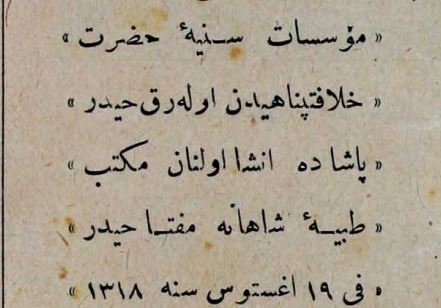 « مؤسسات سنیۀ حضرت »
« خلافتپناهیدن اوله‌رق حیدر »
« پاشا ده انشا اولنان مکتب »
« طبیۀ شاهانه مفتـا حیدر »
« فی ١٩ اغستوس سنه ١٣١٨ »